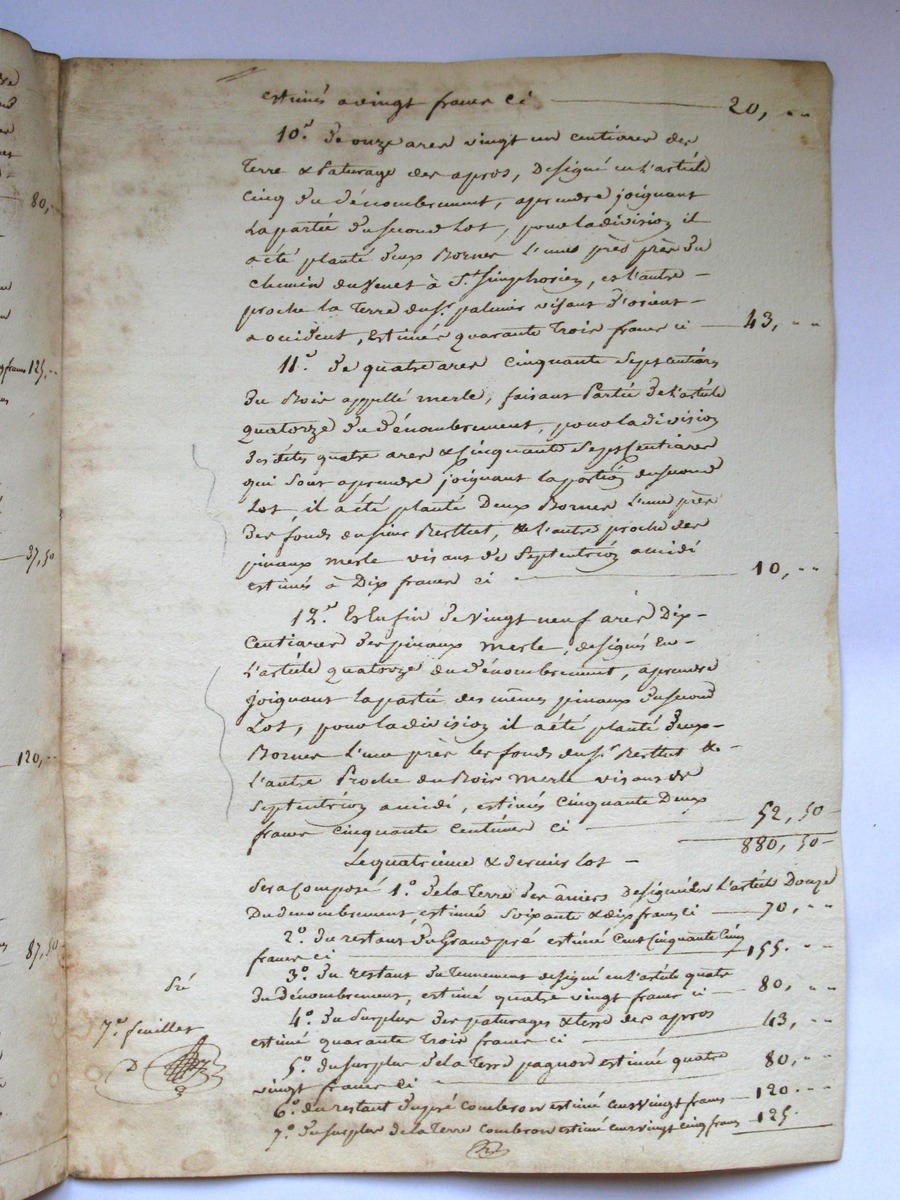 80,..
125,..
37,50
120,..
87,50
estimés a vingt francs ci 20, ..
10.º De onze ares vingt un centiares des
Terre & Paturage des apros, Designé en l'article
Cinq du dénombrement, aprendre joignant
La partie du second Lot, pour la division il
a été planté deux Bornes l'une près près du
chemin du Venet à St. Simphorien, et l'autre -
proche la Terre du Sr. palmier visant d'orient -
a occident, Estimés quarante Trois francs ci 43, ..
11.º De quatre ares cinquante Sept centiares
Du Bois appellé merle, faisant Partie de l'article
quatorze du dénombrement, pour la division
Desdits quatre ares & Cinquante Sept Centiares
qui Sont aprendre joignant la portion du second
Lot, il a été planté Deux Bornes l'une près
Des fonds du sieur Berthet, & l'autre proche des
pinaux merle visant de Septentrion a midi
estimés à Dix francs ci 10, ..
12.º Et Enfin De Vingt neuf ares Dix -
Centiares Des pinaux merle, designés En -
l'article quatorze du dénombrement, aprendre
joignant la partie des mêmes pinaux du second
Lot, pour la division il a été planté deux -
Bornes l'une près les fonds du Sr. Berthet & -
l'autre Proche du Bois merle visant de
Septentrion a midi, estimés Cinquante Deux
francs cinquante centimes ci 52, 50
880, 50 -
Le quatrième & dernier Lot -
Sera Composé 1.º de la Terre des âniers Designée en l'article Douze
Du denombrement, estimée Soixante & dix francs ci 70, ..
2.º du restant du Grand pré estimé Cent Cinquante Cinq
francs ci 155. ..
3.º du restant du Tennement designé en l'article quatre
du dénombrement, estimé quatre vingt francs ci 80, ..
4.º du Surplus des paturages & terre des apros
estimé quarante Trois francs ci 43, ..
5.º du surplus de la Terre pagnon estimée quatre
vingt francs ci 80, ..
6.º du restant du pré Combron estimé cent vingt francs 120. ..
7.º du surplus de la Terre Combron estimé cent vingt cinq francs 125.
7.e feuillet
D